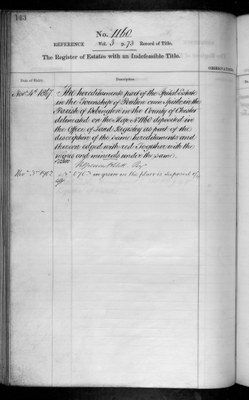 163
No. 1160.
REFERENCE Vol. 3 p. 73 Record of Title.
The Register of Estates with an Indefeasible Title.
Date of Entry.
Description.
Novr 14th 1867
The hereditaments part of the Estate
in the Township of Poulton cum Spital in the
Parish of Bebington in the County of Chester
delineated on the Map No 1160 deposited in
the Office of Land Registry as part of the
description of the same hereditaments and
thereon edged with red Together with the
mines and minerals under the same
Novr
No on green on the plan is disposed of